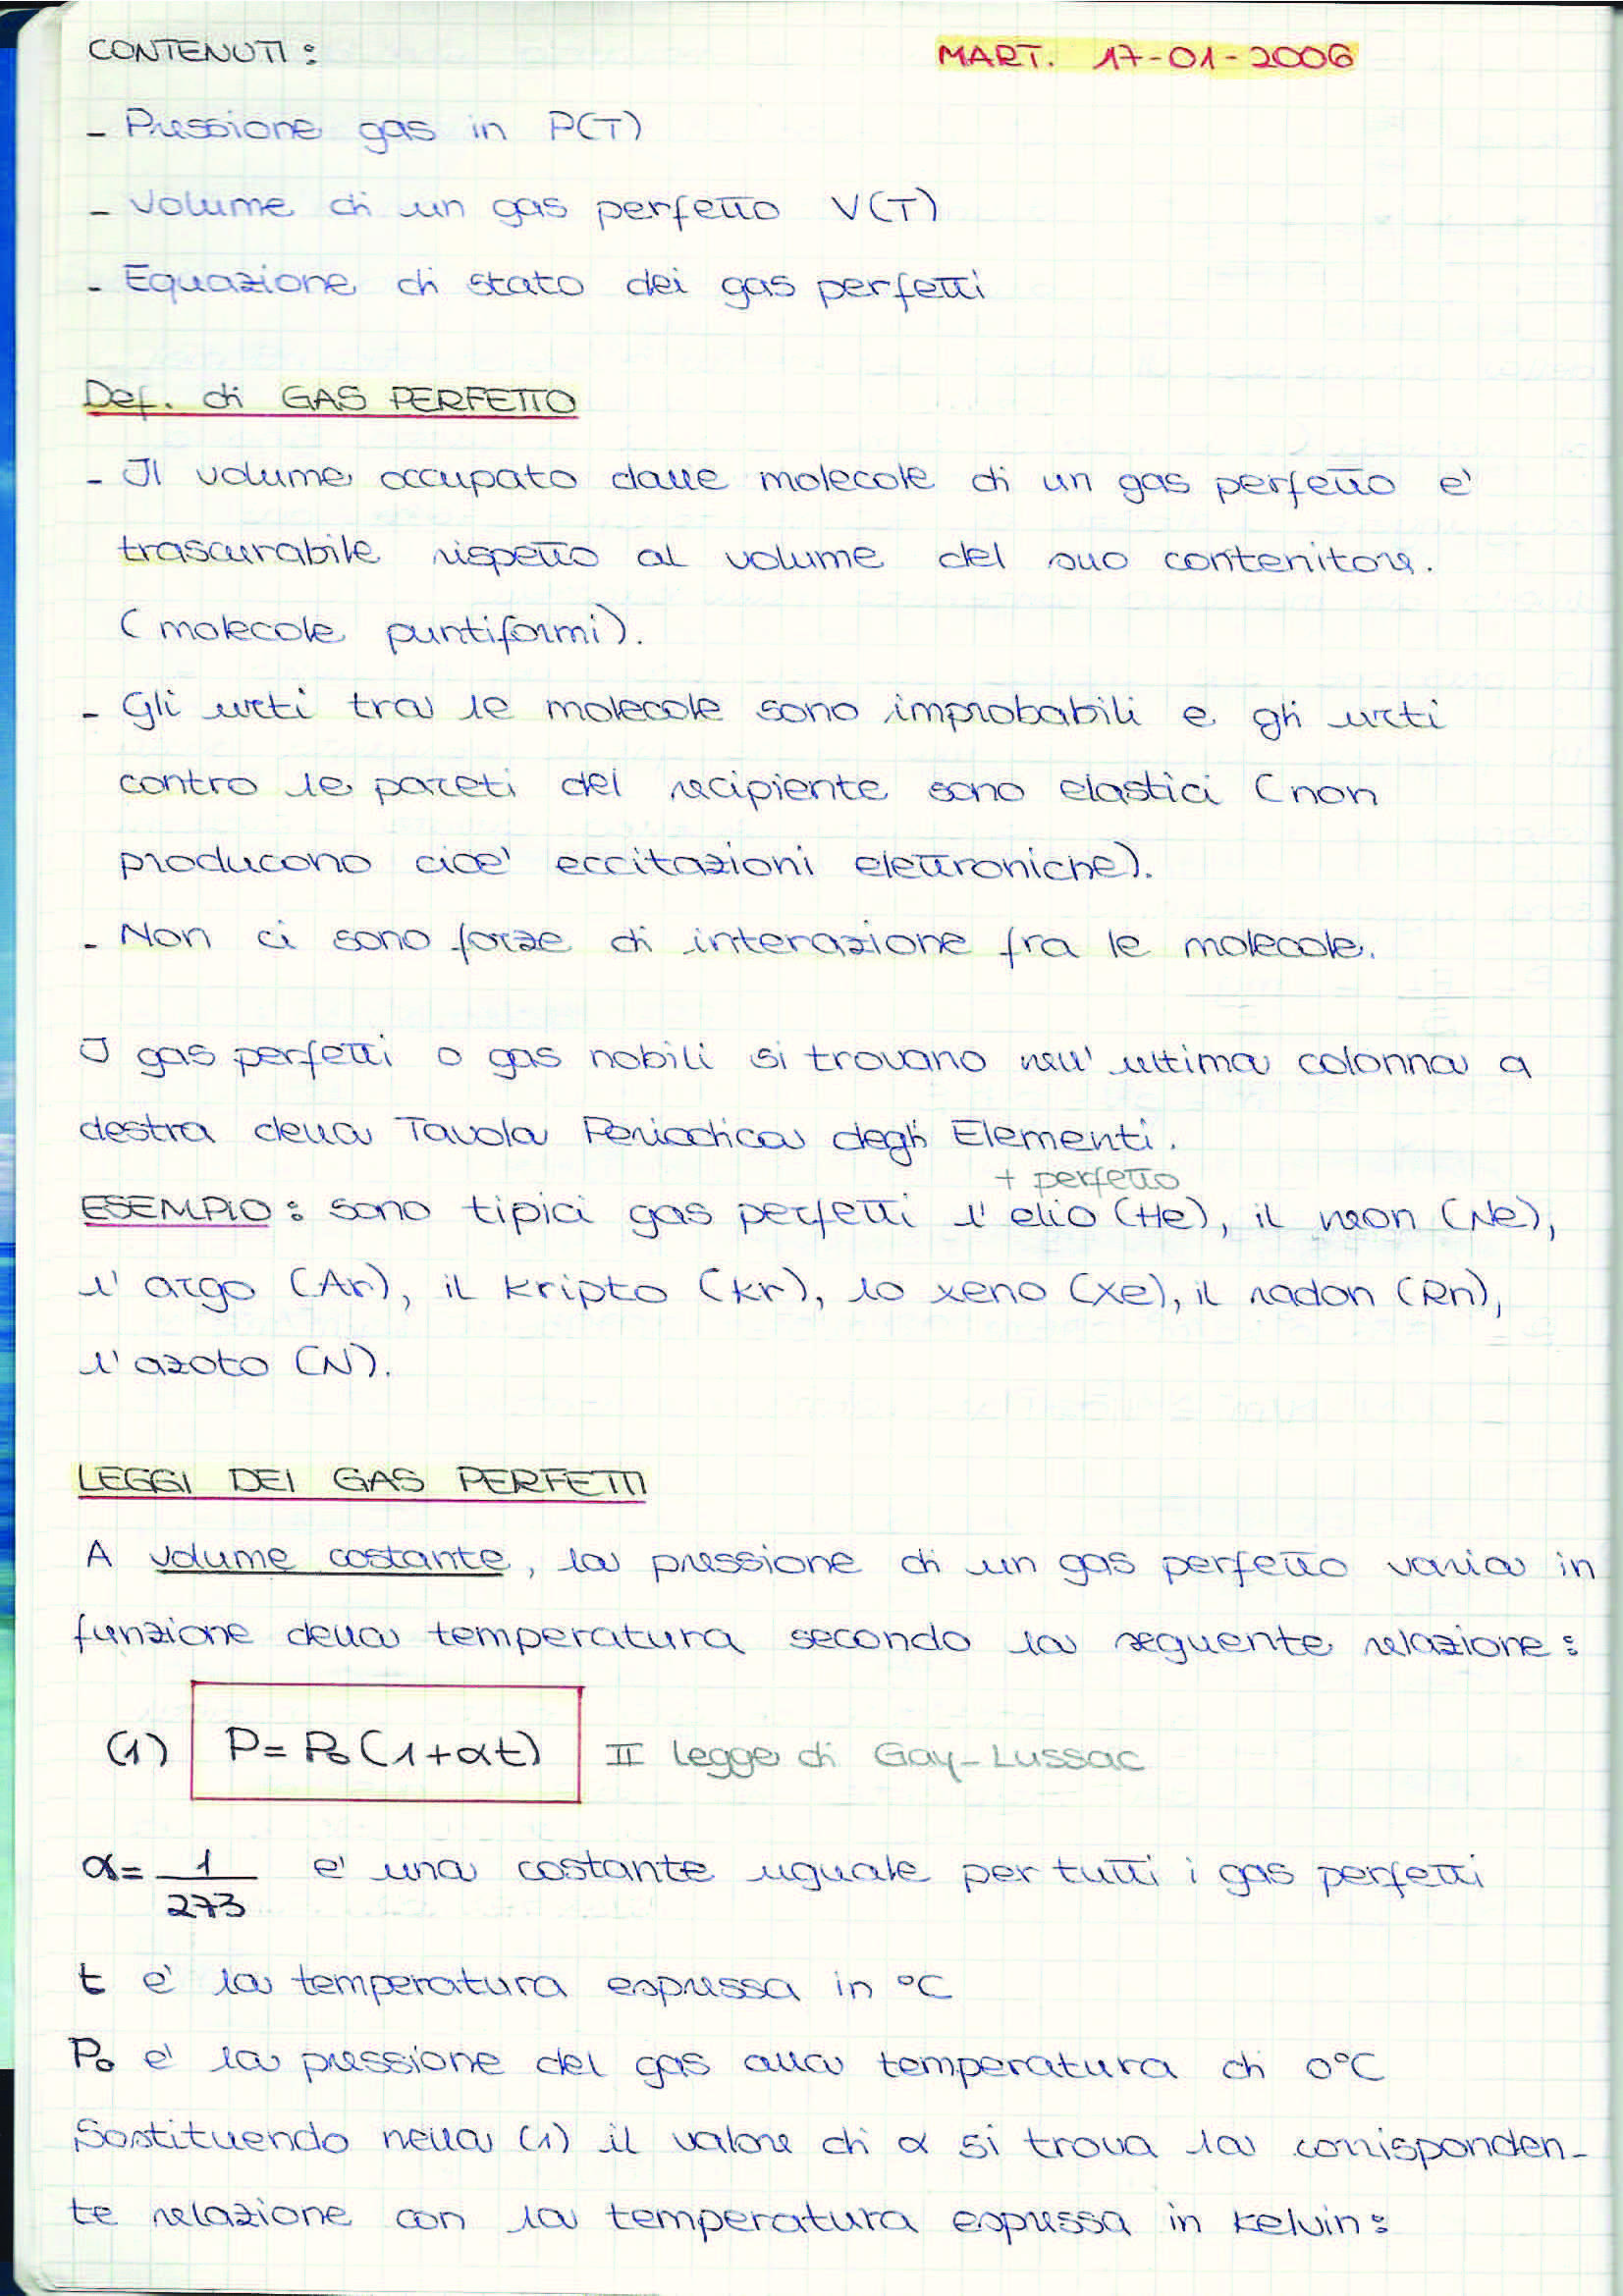 CONTENUTI: MART. 17-01-2006
- Pressione gas in P(T)
- Volume di un gas perfetto V(T)
- Equazione di stato dei gas perfetti
Def. di GAS PERFETTO
- Il volume occupato dalle molecole di un gas perfetto e'
trascurabile rispetto al volume del suo contenitore.
(molecole puntiformi).
- Gli urti tra le molecole sono improbabili e gli urti
contro le pareti del recipiente sono elastici (non
producono cioe' eccitazioni elettroniche).
- Non ci sono forze di interazione fra le molecole.
I gas perfetti o gas nobili si trovano nell'ultima colonna a
destra della Tavola Periodica degli Elementi.
+ perfetto
ESEMPIO: sono tipici gas perfetti l'elio (He), il neon (Ne),
l'argo (Ar), il kripto (Kr), lo xeno (Xe), il radon (Rn),
l'azoto (N).
LEGGI DEI GAS PERFETTI
A volume costante, la pressione di un gas perfetto varia in
funzione della temperatura secondo la seguente relazione:
(1) P=P₀(1+αt) II legge di Gay-Lussac
α= 1/273 e' una costante uguale per tutti i gas perfetti
t e' la temperatura espressa in °C
P₀ e' la pressione del gas alla temperatura di 0°C
Sostituendo nella (1) il valore di α si trova la corrisponden-
te relazione con la temperatura espressa in kelvin: